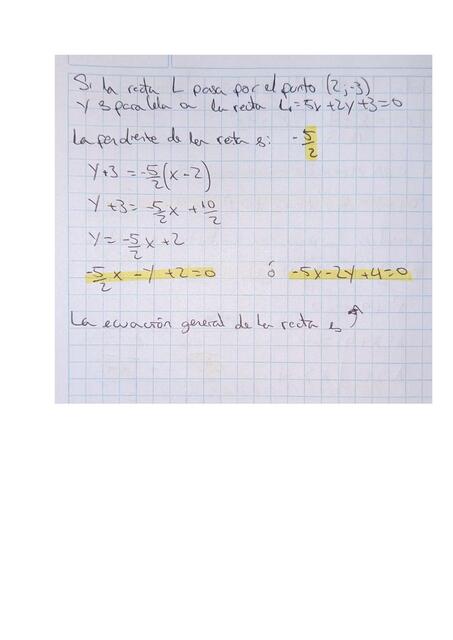 Si la recta L pasa por el punto (2;-3)
y es paralela a la recta L₁=5x+2y+3=0
La pendiente de la recta es: -5/2
y+3 = -5/2(x-2)
y+3= -5/2x + 10/2
y= -5/2x+2
-5/2x -y+2=0 ó -5x-2y+4=0
La ecuación general de la recta es ↑